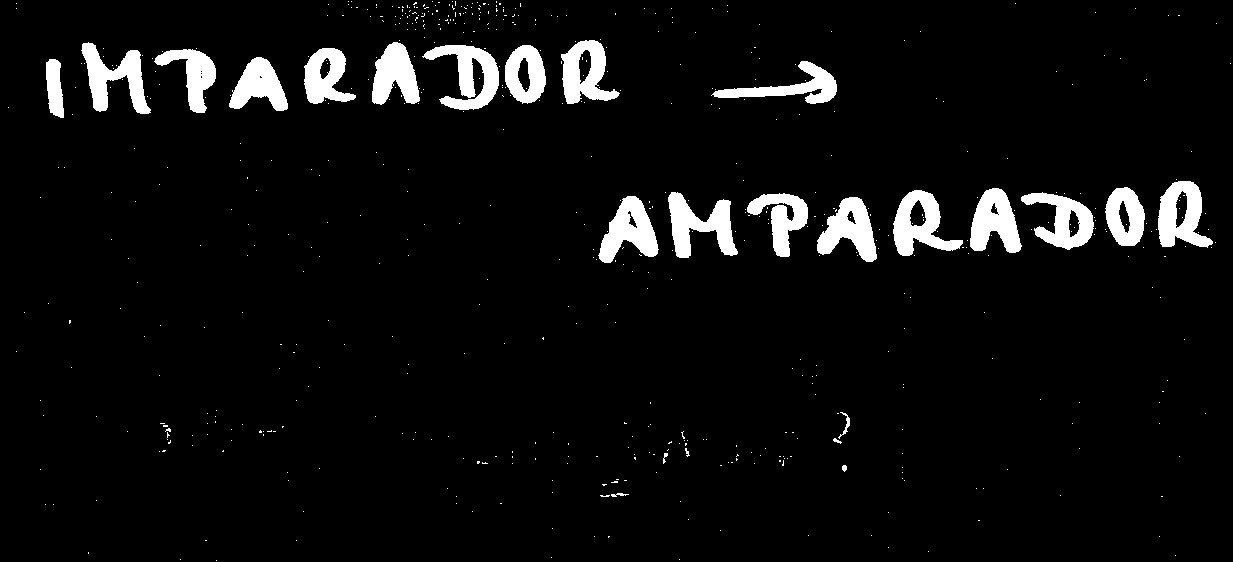 IMPARADOR →
AMPARADOR
?